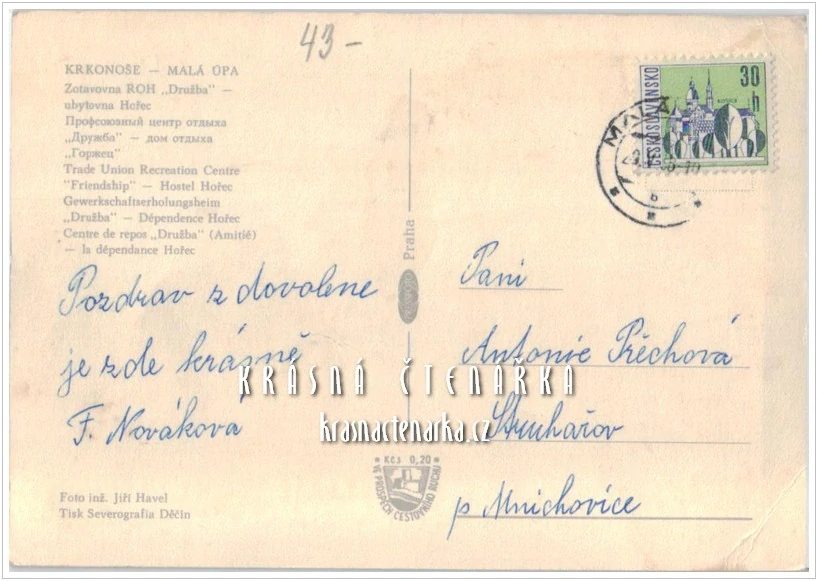 43-
KRKONOŠE — MALÁ ÚPA
Zotavovna ROH „Družba" —
ubytovna Hořec
Профсоюзный центр отдыха
„Дружба" — дом отдыха
„Горжец"
Trade Union Recreation Centre
"Friendship" — Hostel Hořec
Gewerkschaftserholungsheim
„Družba" — Dépendence Hořec
Centre de repos „Družba" (Amitié)
— la dépendance Hořec
Pozdrav z dovolene
je zde krásně
F. Nováková
Foto inž. Jiří Havel
Tisk Severografia Děčín
Praha
ČESKOSLOVENSKO
30
h
KOŠICE
MALÁ
Paní
Antonie Pěchová
Struhařov
p Mnichovice
KRÁSNÁ ČTENÁŘKA
krasnactenarka.cz
Kčs 0,20
VE PROSPĚCH CESTOVNÍHO RUCHU